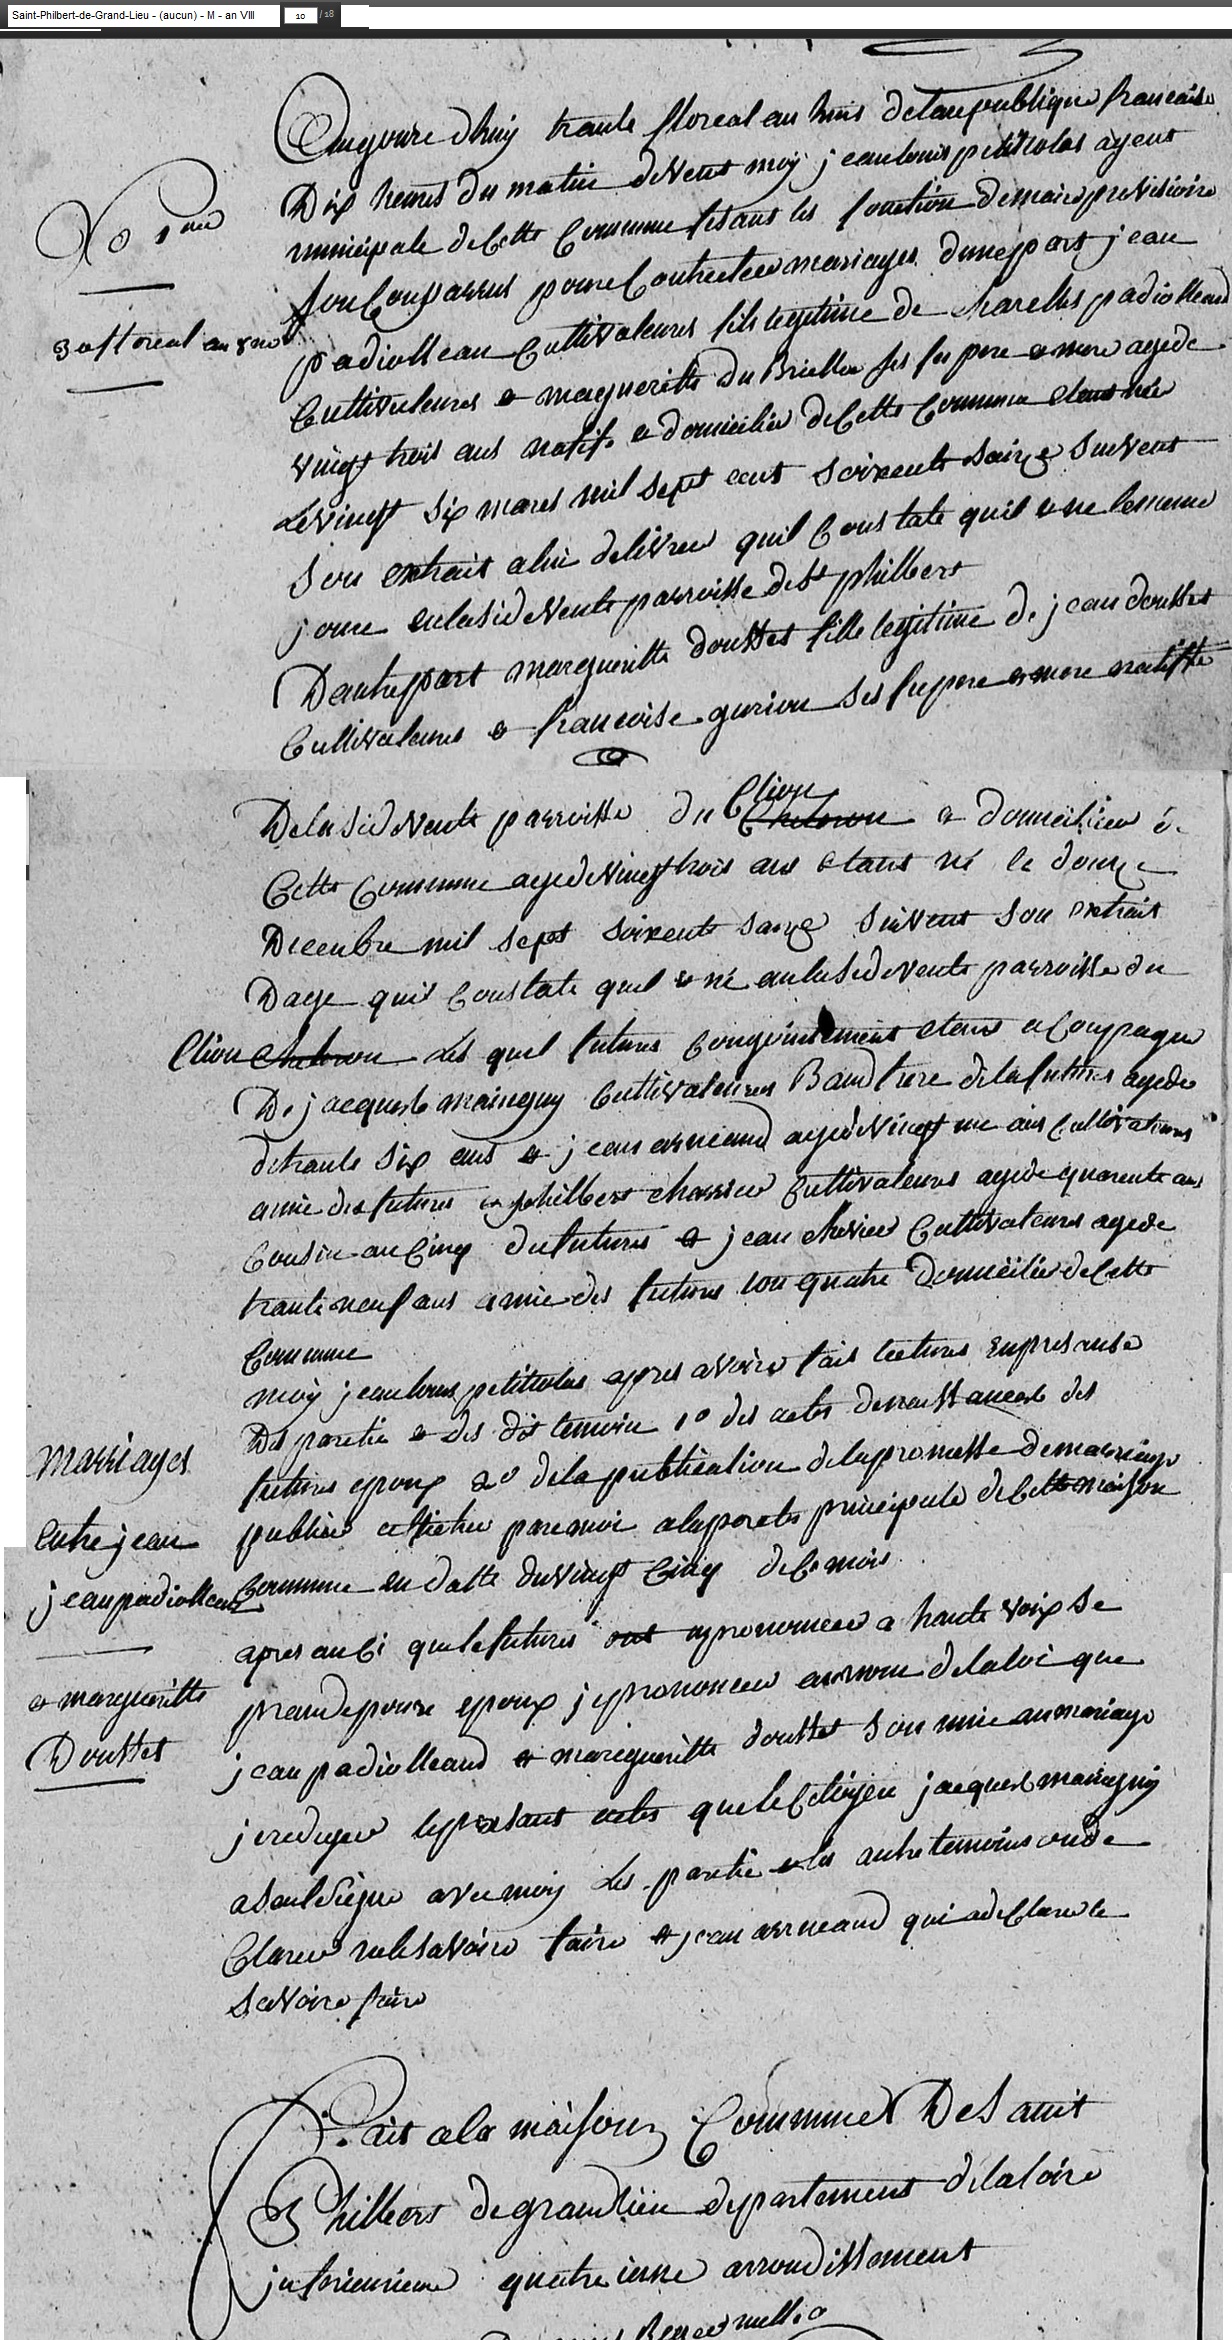 Saint-Philbert-de-Grand-Lieu - (aucun) - M - an VIII 10 / 18
Augoure dhuy trante floreal an huis delarepublique francaise
Dix heures du matin devent moy jeanlouis petitcolas agent
municipale de Cette Commune fesant les fonction demaire provisoire
son Conparrus pour Contrecter mariages dunepart jean
padiolleau Cultivateures fils legitime de charelles padiolleaud
Cultivateures et margueritte du Brielle ses feu pere et mere agede
vingt trois ans natif et domicilié de Cette Commune etant née
Le vingt six mares mil sept cent soixente saize suivent
Son extrait alui delivree quil Constate quil et ne lememe
joure enlasidevente parroisse de St philbert
Dautrepart margueritte dousset fille legitime de jean dousset
Cultivateures et francoise guriou ses feu pere et mere natifve
No 1er
30 floreal an 8
Delasidevente parroisse du Clion et domicilieé
Cette Commune agedevingthois ans etant né le douze
Decenbre mil sept soixente saize suivent son extrait
Dage quil Constate quel et né anlasidevente parroisse du
Clion Les quel futures Congointement etans acompagne
De jacques maingguy Cultivateures Baufrere delafuture agede
detrante six ans et jean arneaud agédevingt un ans Cultivateures
amie des futures et philbert chevrier Cultivateures agede quarente ans
Cousin au Cinq dufutures et jean chevier Cultivateures agede
trante neuf ans amie des futures tou quatre Domicilié de Cette
Commune
moy jeanlouis petitcolas apres avoire fait lectures enpresanse
Des partie et des dit temoin 1° des actes denaissances des
futures epoux 2° dela publication delapromesse demarriage
publiée affichee parmoi alaporte principale de Cette maison
Commune en datte duvingt Cinq de Ce mois
apres auCi que le futures on prononcee a haute voix se
prandre poure epoux jeprononcee aunom delaloi que
jean padiolleaud et margueritte dousset son unie anmariage
jeredigee lepresant actes que le Citoyen jacques mainguy
asoulsigne avec moy Les partie et les autre temoins onde
Claree nele savoire faire et jean arneaud qui adeClarele
savoire faire
Marriages
Entre jean
jean padiolleaud
et margueritte
Dousset
Fait ala maison Commune De Saint
Philbert degrandlieu departement delaloire
inferieurieure quatrieme arrondissement